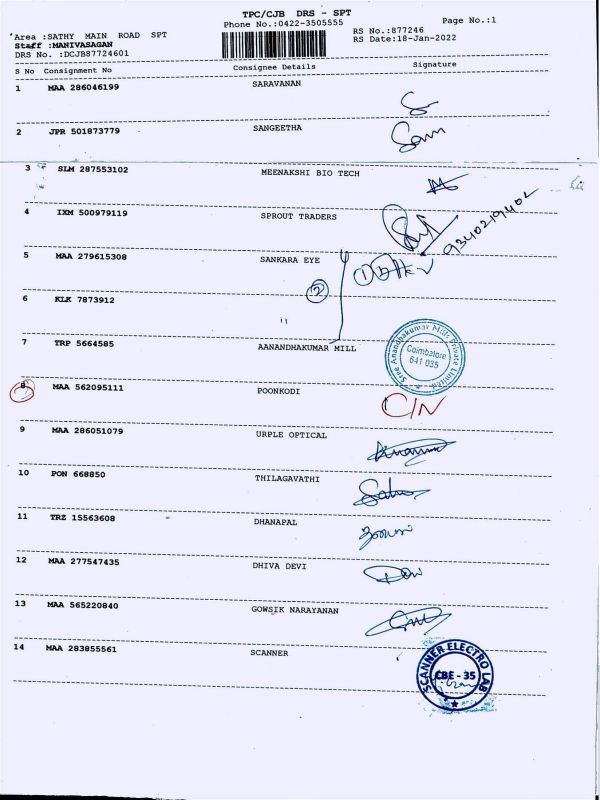 TPC/CJB DRS - SPT
Phone No.:0422-3505555
Page No.:1
Area :SATHY MAIN ROAD SPT
RS No.:877246
Staff :MANIVASAGAN
RS Date:18-Jan-2022
DRS No. :DCJB87724601
S No Consignment No Consignee Details Signature
1 MAA 286046199 SARAVANAN
2 JPR 501873779 SANGEETHA
3 SLM 287553102 MEENAKSHI BIO TECH
4 IXM 500979119 SPROUT TRADERS
9340219402
5 MAA 279615308 SANKARA EYE
2
1
6 KLK 7873912 "
7 TRP 5664585 AANANDHAKUMAR MILL
Sree Anandhakumar Mills Private Limited
Coimbatore
641 035
8 MAA 562095111 POONKODI
C/N
9 MAA 286051079 URPLE OPTICAL
10 PON 668850 THILAGAVATHI
11 TRZ 15563608 DHANAPAL
12 MAA 277547435 DHIVA DEVI
13 MAA 565220840 GOWSIK NARAYANAN
14 MAA 283855561 SCANNER
SCANNER ELECTRO LAB
CBE - 35